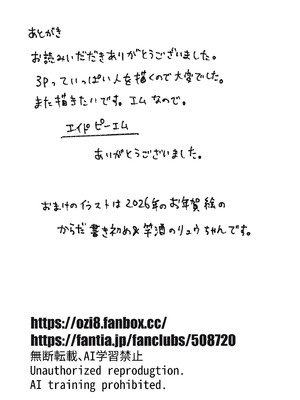 あとがき
お読みいただきありがとうございました。
3Pっていっぱい人を描くので大変でした。
また描きたいです。エムなので。
エイド ピーエム
ありがとうございました。
おまけのイラストは2026年のお年賀絵の
からだ書き初め&竿酒のリュウちゃんです。
https://ozi8.fanbox.cc/
https://fantia.jp/fanclubs/508720
無断転載、AI学習禁止
Unauthorized reprodugtion.
AI training prohibited.